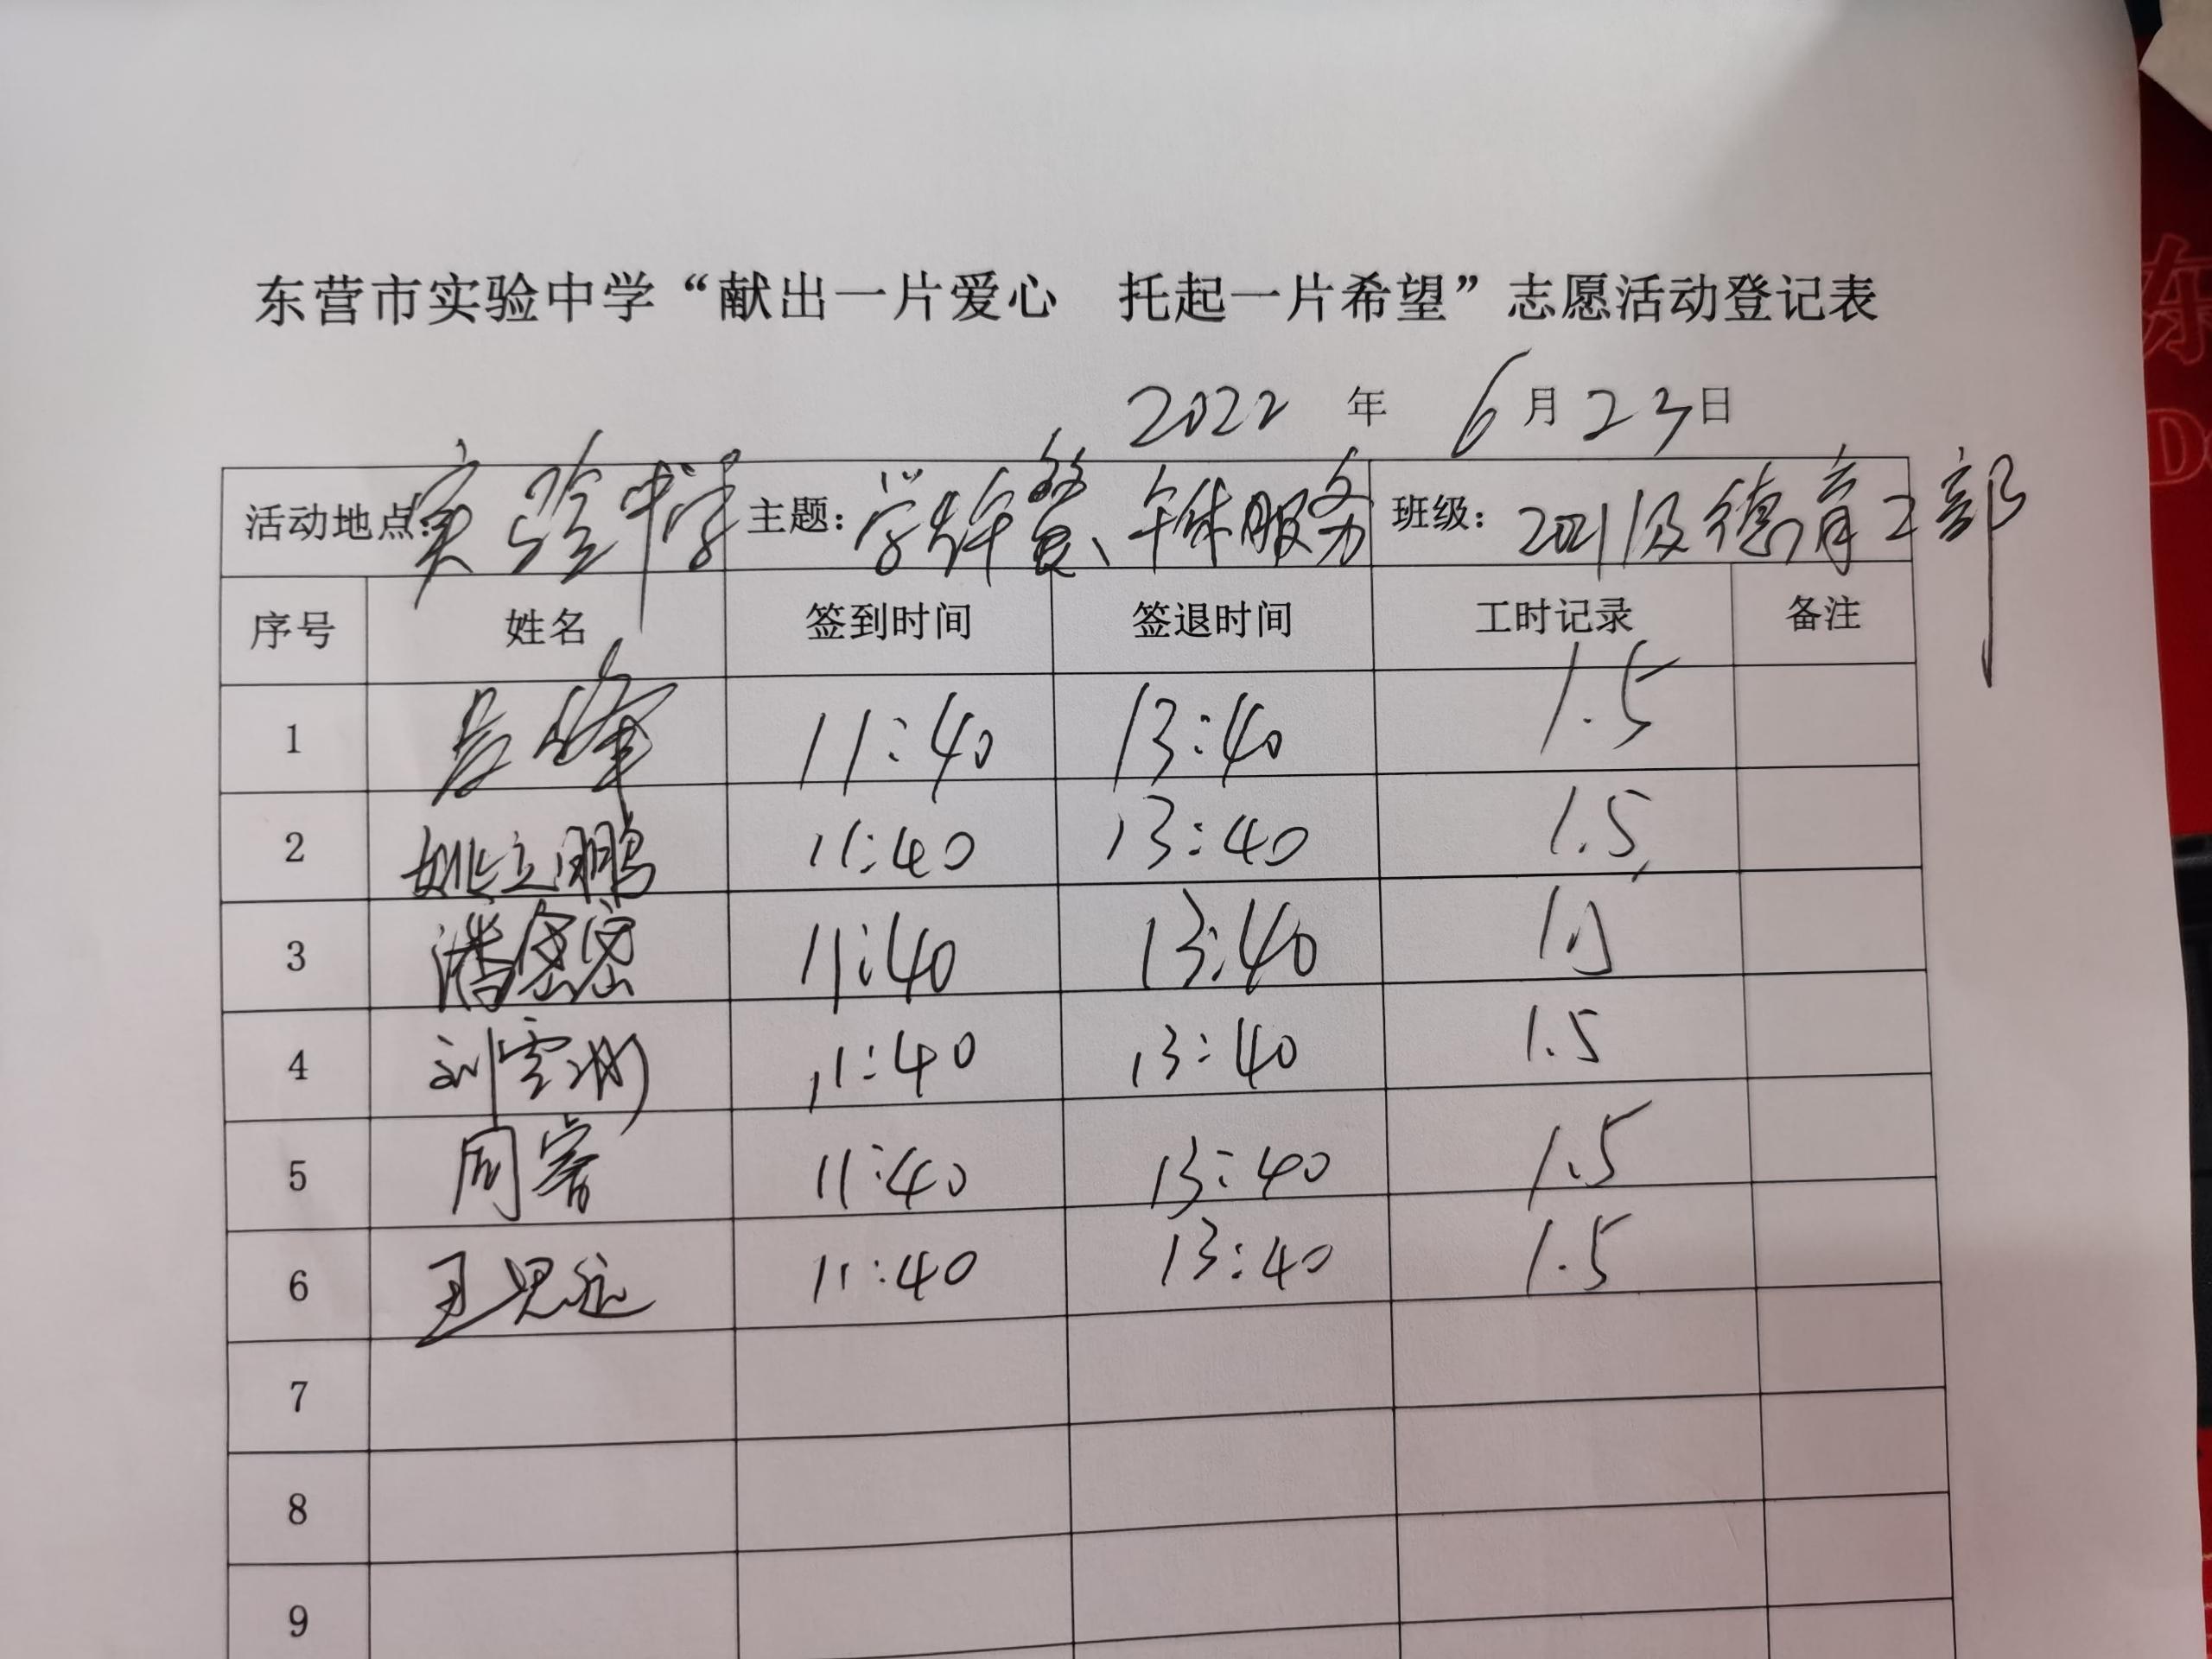 东营市实验中学“献出一片爱心 托起一片希望”志愿活动登记表
2022 年 6月23日
活动地点:实验中学 主题:学生午餐、午休服务 班级:2021级德育2部
序号 姓名 签到时间 签退时间 工时记录 备注
1 峰 11:40 13:40 1.5
2 姚立鹏 11:40 13:40 1.5
3 潘密密 11:40 13:40 1.5
4 刘雪 11:40 13:40 1.5
5 周 11:40 13:40 1.5
6 王思远 11:40 13:40 1.5
7
8
9
东
D